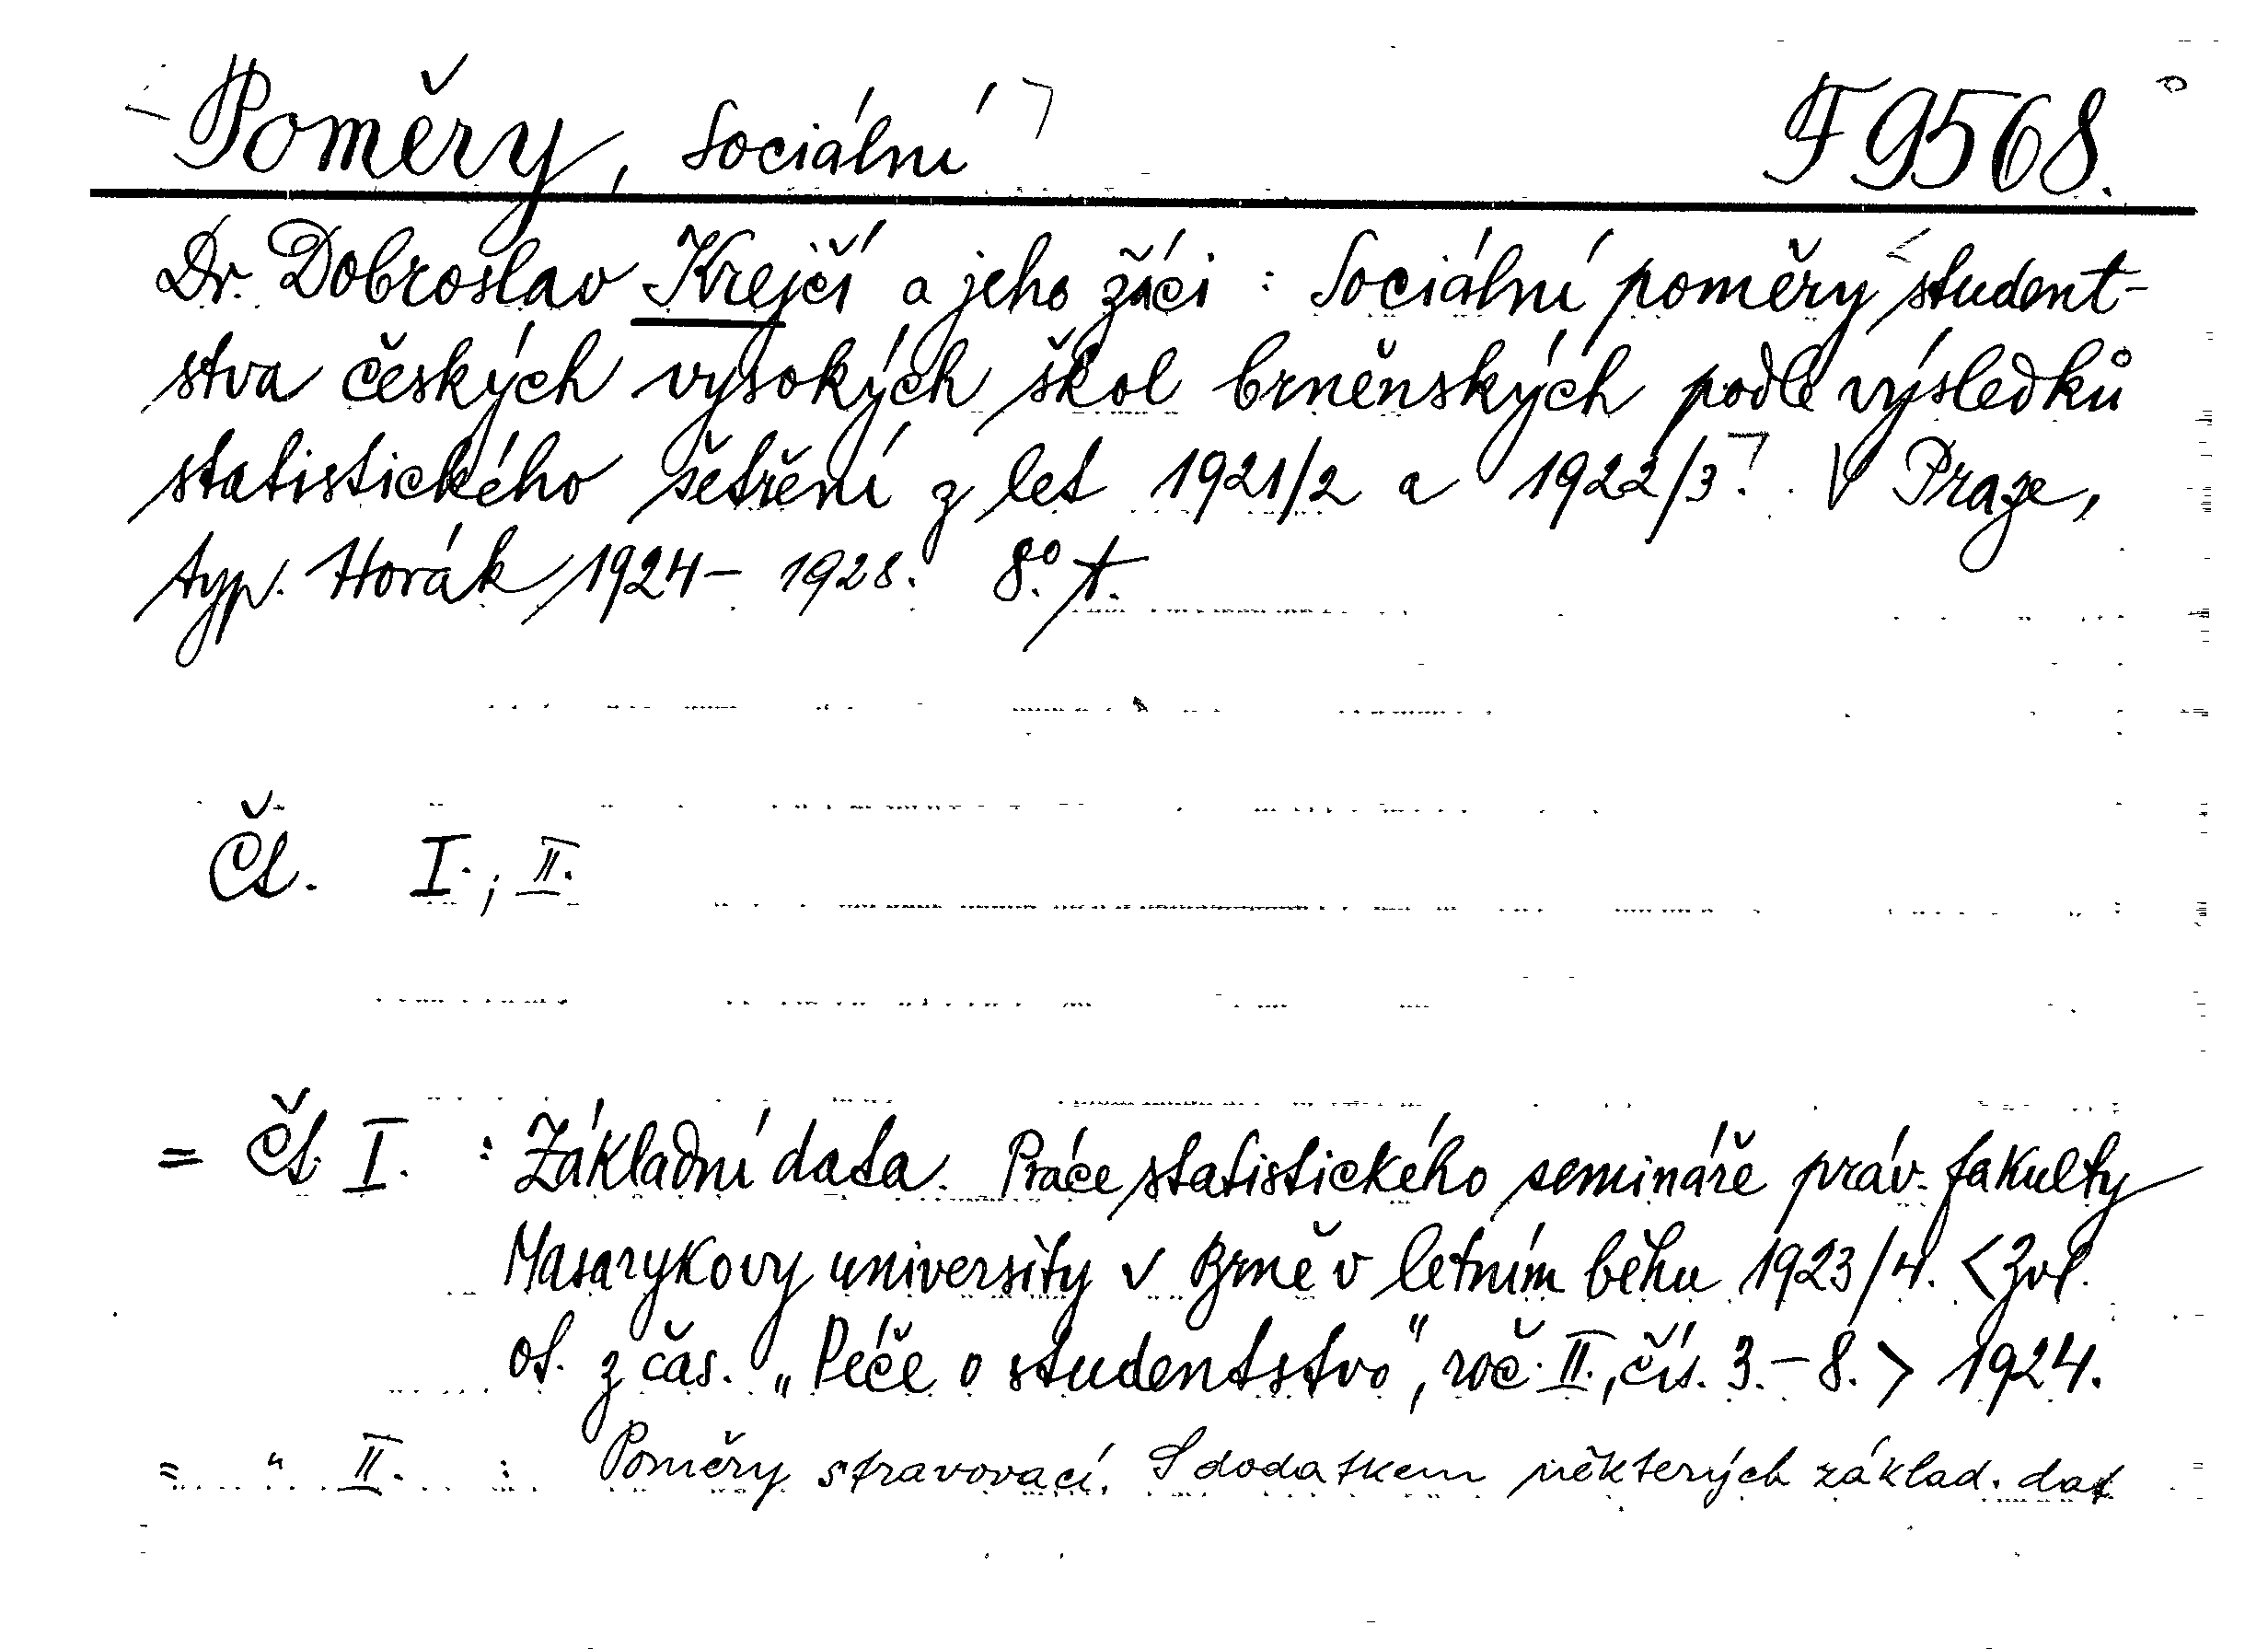 Poměry, Sociální F 9568.
Dr. Dobroslav Krejčí a jeho žáci : Sociální poměry student-
stva českých vysokých škol brněnských podle výsledků
statistického šetření z let 1921/2 a 1922/3. V Praze,
typ. Horák 1924 – 1928. 8° t.
Čt. I. ; II.
= Čt. I. : Základní data. Práce statistického semináře práv. fakulty
Masarykovy university v Brně v letním běhu 1923/4. <Zvl.
ot. z čas. „Péče o studentstvo“, roč. II., čís. 3. – 8. > 1924.
= " II. : Poměry stravovací. S dodatkem některých základ. dat